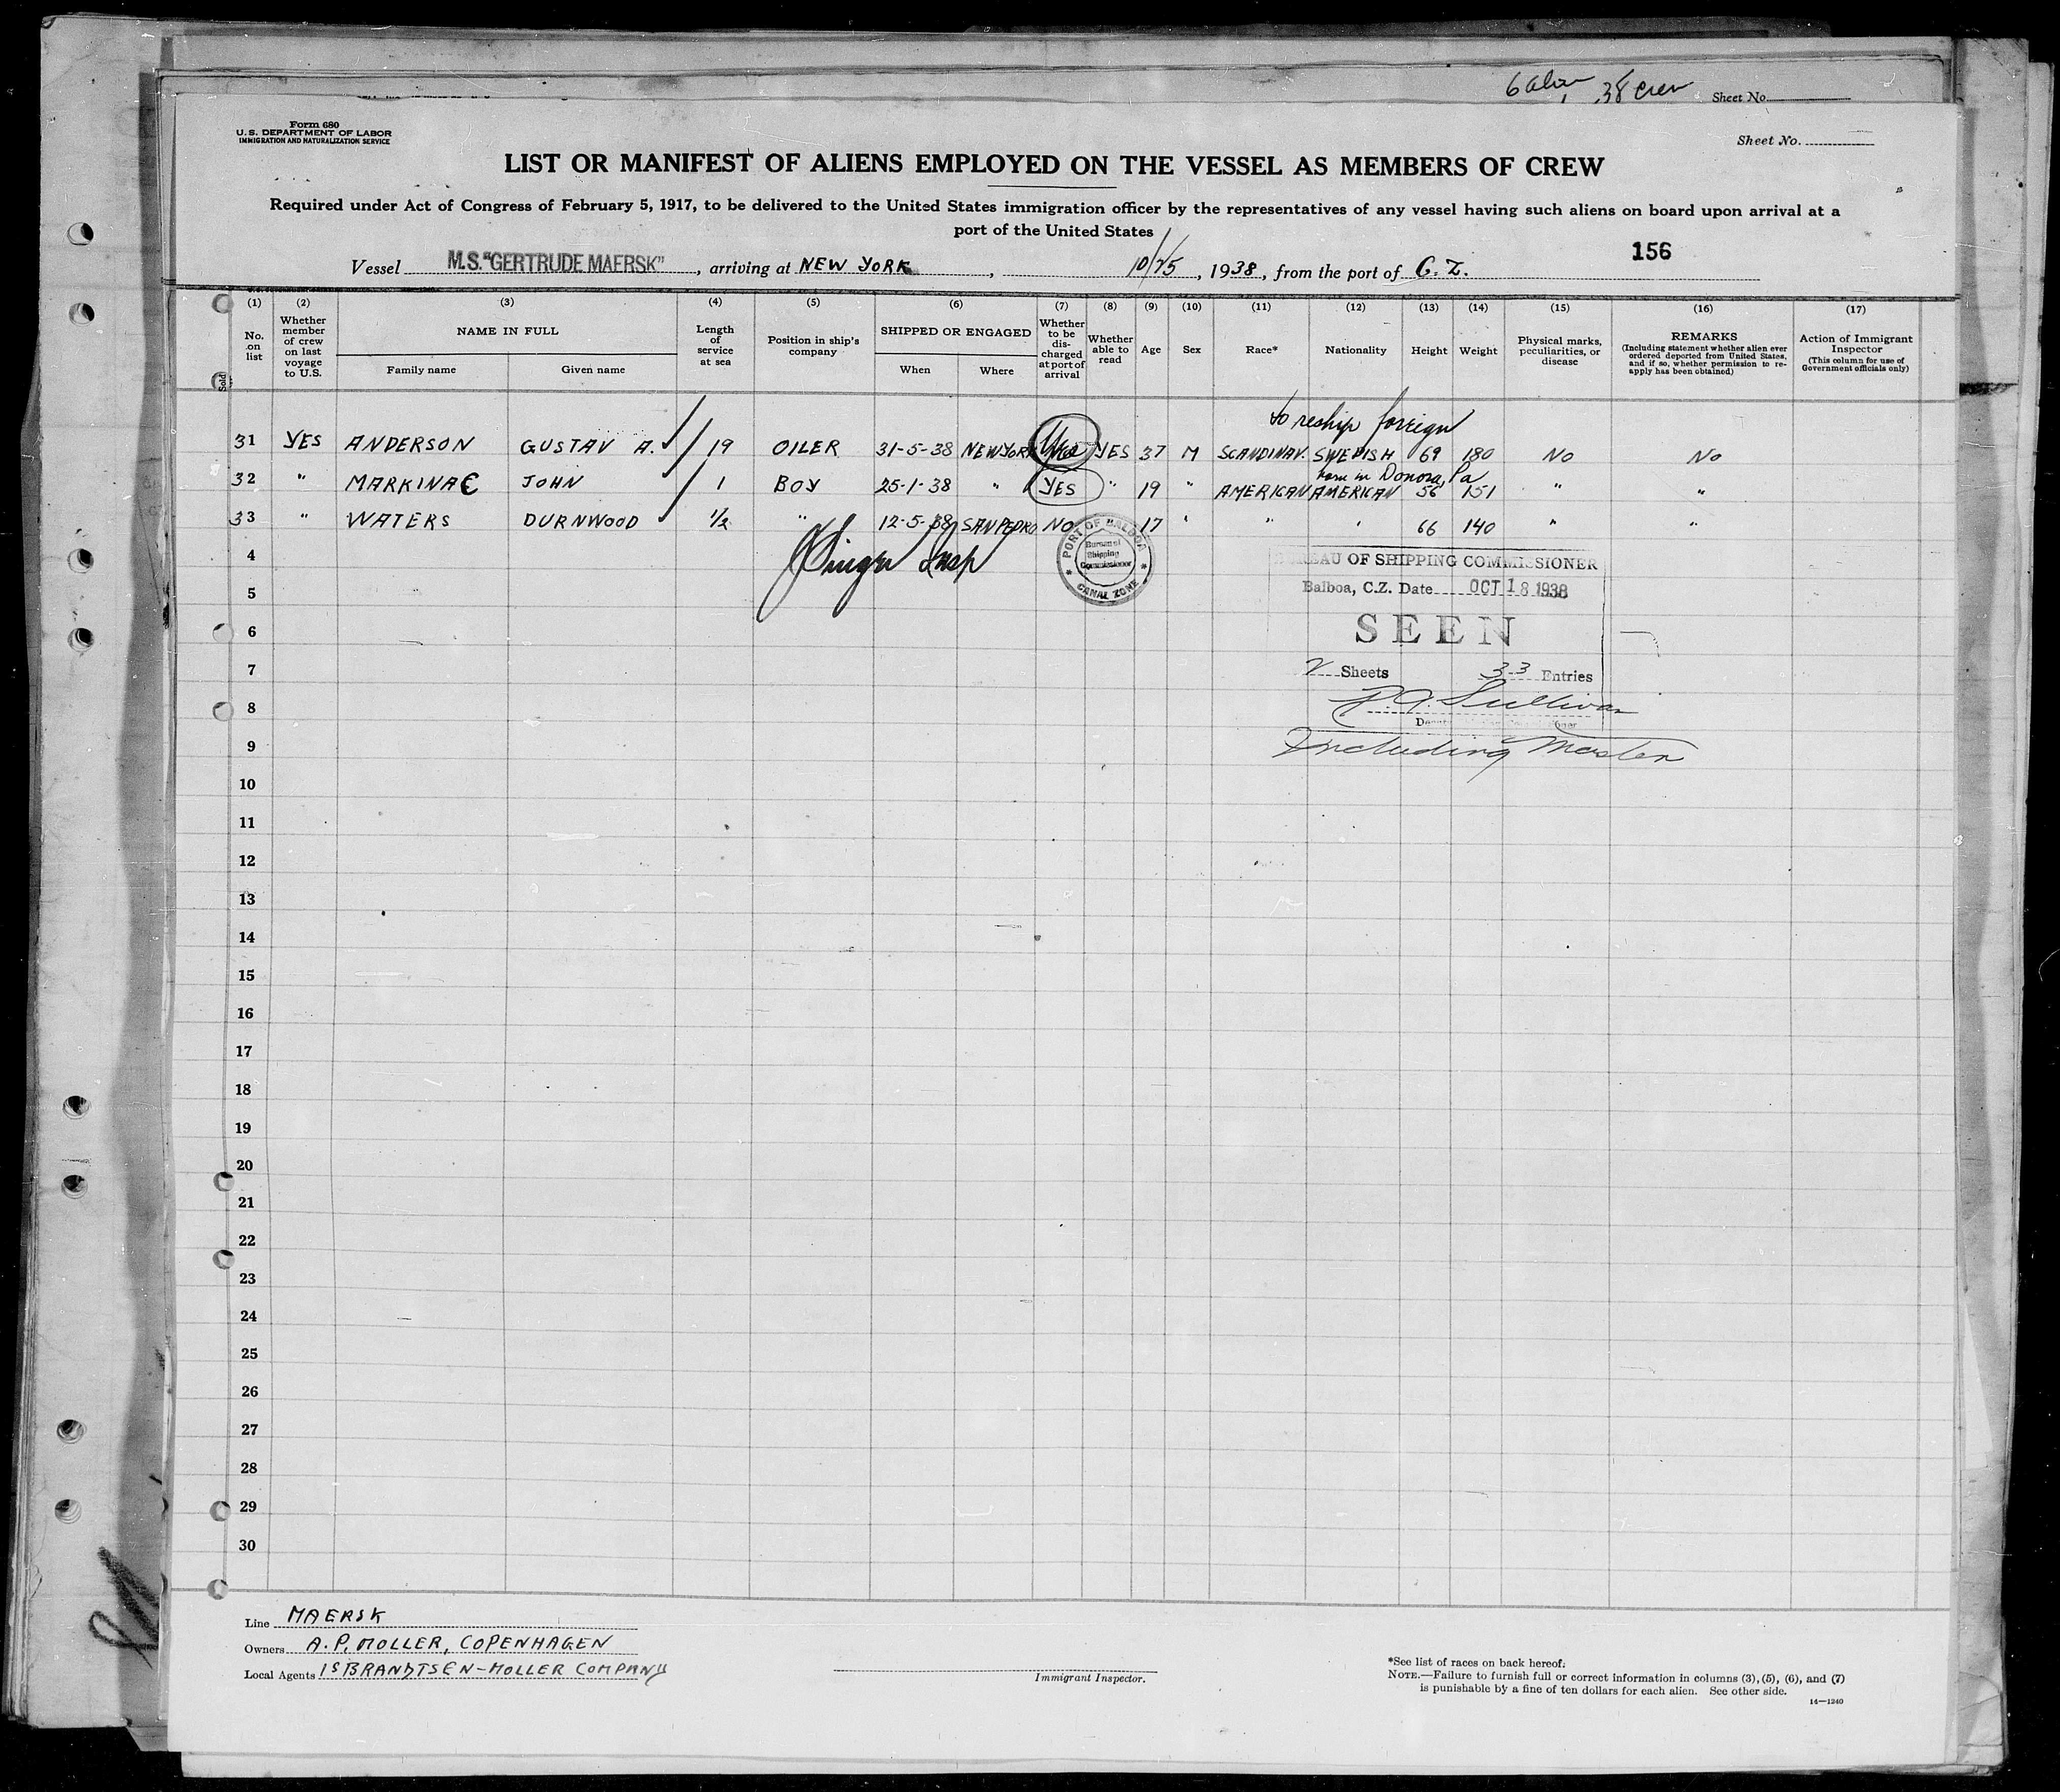 38 crew Sheet No.
Form 680
U.S. DEPARTMENT OF LABOR
IMMIGRATION AND NATURALIZATION SERVICE
Sheet No.
LIST OR MANIFEST OF ALIENS EMPLOYED ON THE VESSEL AS MEMBERS OF CREW
Required under Act of Congress of February 5, 1917, to be delivered to the United States immigration officer by the representatives of any vessel having such aliens on board upon arrival at a
port of the United States
156
Vessel M.S. "GERTRUDE MAERSK", arriving at NEW YORK, 10/25, 1938, from the port of C. Z.
(1) (2) (3) (4) (5) (6) (7) (8) (9) (10) (11) (12) (13) (14) (15) (16) (17)
No. on list
Whether member of crew on last voyage to U.S.
NAME IN FULL
Family name Given name
Length of service at sea
Position in ship's company
SHIPPED OR ENGAGED
When Where
Whether to be discharged at port of arrival
Whether able to read
Age
Sex
Race*
Nationality
Height
Weight
Physical marks, peculiarities, or disease
REMARKS
(Including statement whether alien ever ordered deported from United States, and if so, whether permission to reapply has been obtained)
Action of Immigrant Inspector
(This column for use of Government officials only)
Sold
to reship foreign
31 YES ANDERSON GUSTAV A. 19 OILER 31-5-38 NEW YORK Yes YES 37 M SCANDINAV. SWEDISH 69 180 NO NO
born in Donora, Pa
32 " MARKINAC JOHN 1 BOY 25-1-38 " YES " 19 " AMERICAN AMERICAN 56 151 " "
33 " WATERS DURNWOOD 1/2 " 12-5-38 SAN PEDRO NO 17 " " " 66 140 " "
Insp
PORT OF BALBOA
Bureau of
Shipping
Commissioner
CANAL ZONE
BUREAU OF SHIPPING COMMISSIONER
Balboa, C.Z. Date OCT 18 1938
SEEN
2 Sheets 33 Entries
Sullivan
Including Master
4
5
6
7
8
9
10
11
12
13
14
15
16
17
18
19
20
21
22
23
24
25
26
27
28
29
30
Line MAERSK
Owners A. P. MOLLER, COPENHAGEN
Local Agents ISBRANDTSEN-MOLLER COMPANY
Immigrant Inspector.
*See list of races on back hereof.
NOTE.—Failure to furnish full or correct information in columns (3), (5), (6), and (7)
is punishable by a fine of ten dollars for each alien. See other side.
14—1240